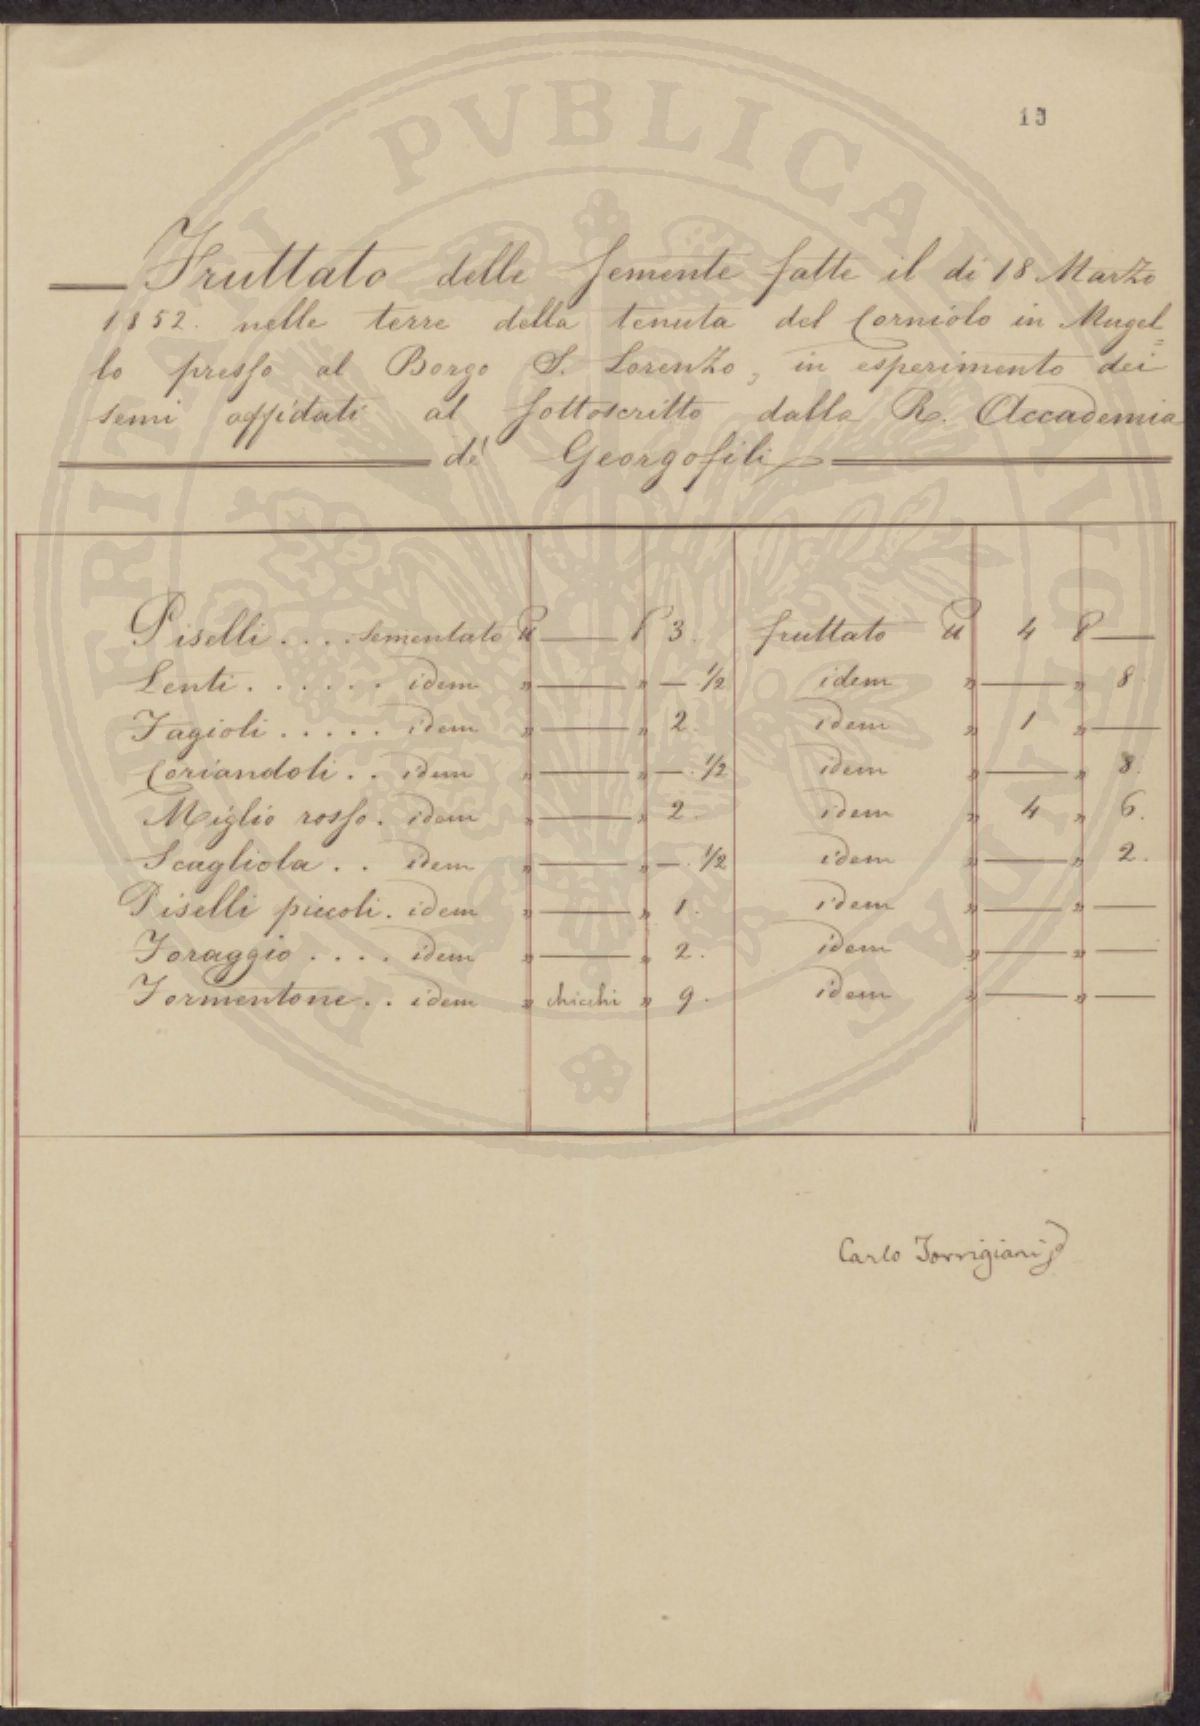 Fruttato delle Semente fatte il di 18 Marzo
1852. nelle terre della tenuta del Corniolo in Mugel=
lo presso al Borgo S. Lorenzo, in esperimento dei
semi affidati al sottoscritto dalla R. Accademia
de' Georgofili
Piselli .... Sementato — 3. fruttato 4 —
Lenti ...... idem " — " — 1/2 idem " — " 8.
Fagioli ..... idem " — " 2. idem " 1 " —
Coriandoli .. idem " — " — 1/2 idem " — " 8.
Miglio rosso . idem " — " 2. idem " 4 " 6.
Scagliola .. idem " — " — 1/2 idem " — " 2.
Piselli piccoli . idem " — " 1. idem " — " —
Foraggio .... idem " — " 2. idem " — " —
Formentone .. idem " chicchi " 9. idem " — " —
Carlo Torrigiani